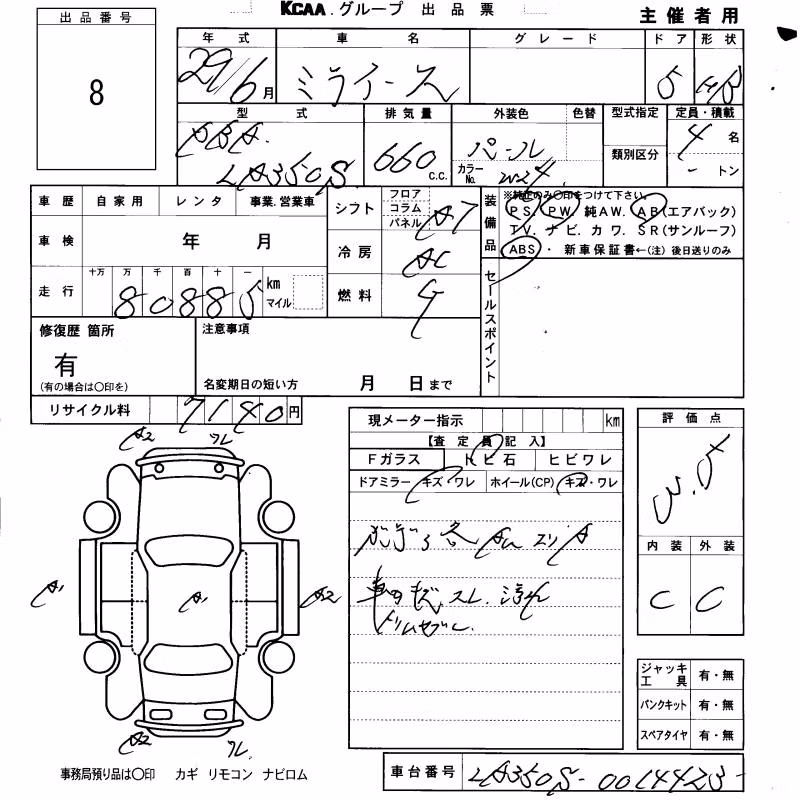 KCAA.グループ 出品票
主催者用
出品番号
8
年式 車名 グレード ドア 形状
29/6月 ミライース 5 HB
型式 排気量 外装色 色替 型式指定 定員・積載
DBA LA350S 660 c.c. パール カラーNo. W24 類別区分 4名
－トン
車歴 自家用 レンタ 事業.営業車
車検 年 月
走行 十万 万 千 百 十 一 km マイル
80885
シフト フロア コラム パネル AT
冷房 AC
燃料 G
装備品 ※純正のみ〇印をつけて下さい。
PS. PW. 純AW. AB(エアバック)
TV. ナビ. カワ. SR(サンルーフ)
ABS・新車保証書←(注)後日送りのみ
セールスポイント
修復歴 箇所
有
(有の場合は〇印を)
注意事項
名変期日の短い方 月 日まで
リサイクル料 7140円
現メーター指示 km
【査定員記入】
Fガラス トビ石 ヒビワレ
ドアミラー キズ・ワレ ホイール(CP) キズ・ワレ
スリ
キズ.スレ.汚れ
評価点
内装 外装
C C
A2 ワレ
A1 A1 A2
A2 ワレ
ジャッキ工具 有・無
パンクキット 有・無
スペアタイヤ 有・無
事務局預り品は〇印 カギ リモコン ナビロム
車台番号 LA350S-0014423